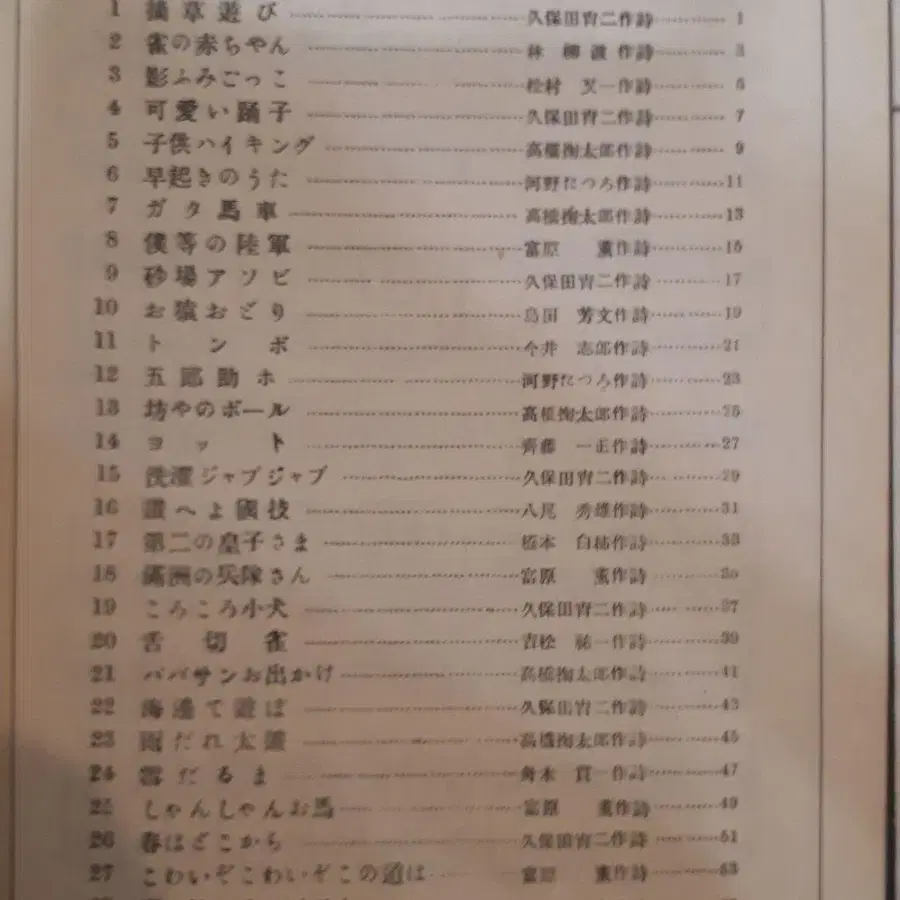 1 摘草遊び 久保田宵二作詩 1
2 雀の赤ちやん 林 柳波作詩 3
3 影ふみごつこ 松村又一作詩 5
4 可愛い踊子 久保田宵二作詩 7
5 子供ハイキング 高橋掬太郎作詩 9
6 早起きのうた 河野たつろ作詩 11
7 ガタ馬車 高橋掬太郎作詩 13
8 僕等の陸軍 富原 薫作詩 15
9 砂場アソビ 久保田宵二作詩 17
10 お猿おどり 島田 芳文作詩 19
11 トンボ 今井 志郎作詩 21
12 五郎助ホ 河野たつろ作詩 23
13 坊やのボール 高橋掬太郎作詩 25
14 ヨット 齊藤 一正作詩 27
15 洗濯ジャブジャブ 久保田宵二作詩 29
16 讃へよ國技 八尾 秀雄作詩 31
17 第二の皇子さま 白柿作詩 33
18 滿洲の兵隊さん 富原 薫作詩 35
19 ころころ小犬 久保田宵二作詩 37
20 舌切雀 吉松 祐一作詩 39
21 パパサンお出かけ 高橋掬太郎作詩 41
22 海邊で遊ぼ 久保田宵二作詩 43
23 雨だれ太鼓 高橋掬太郎作詩 45
24 雪だるま 貫一作詩 47
25 しゃんしゃんお馬 富原 薫作詩 49
26 春はどこから 久保田宵二作詩 51
27 こわいぞこわいぞこの道は 富原 薫作詩 53